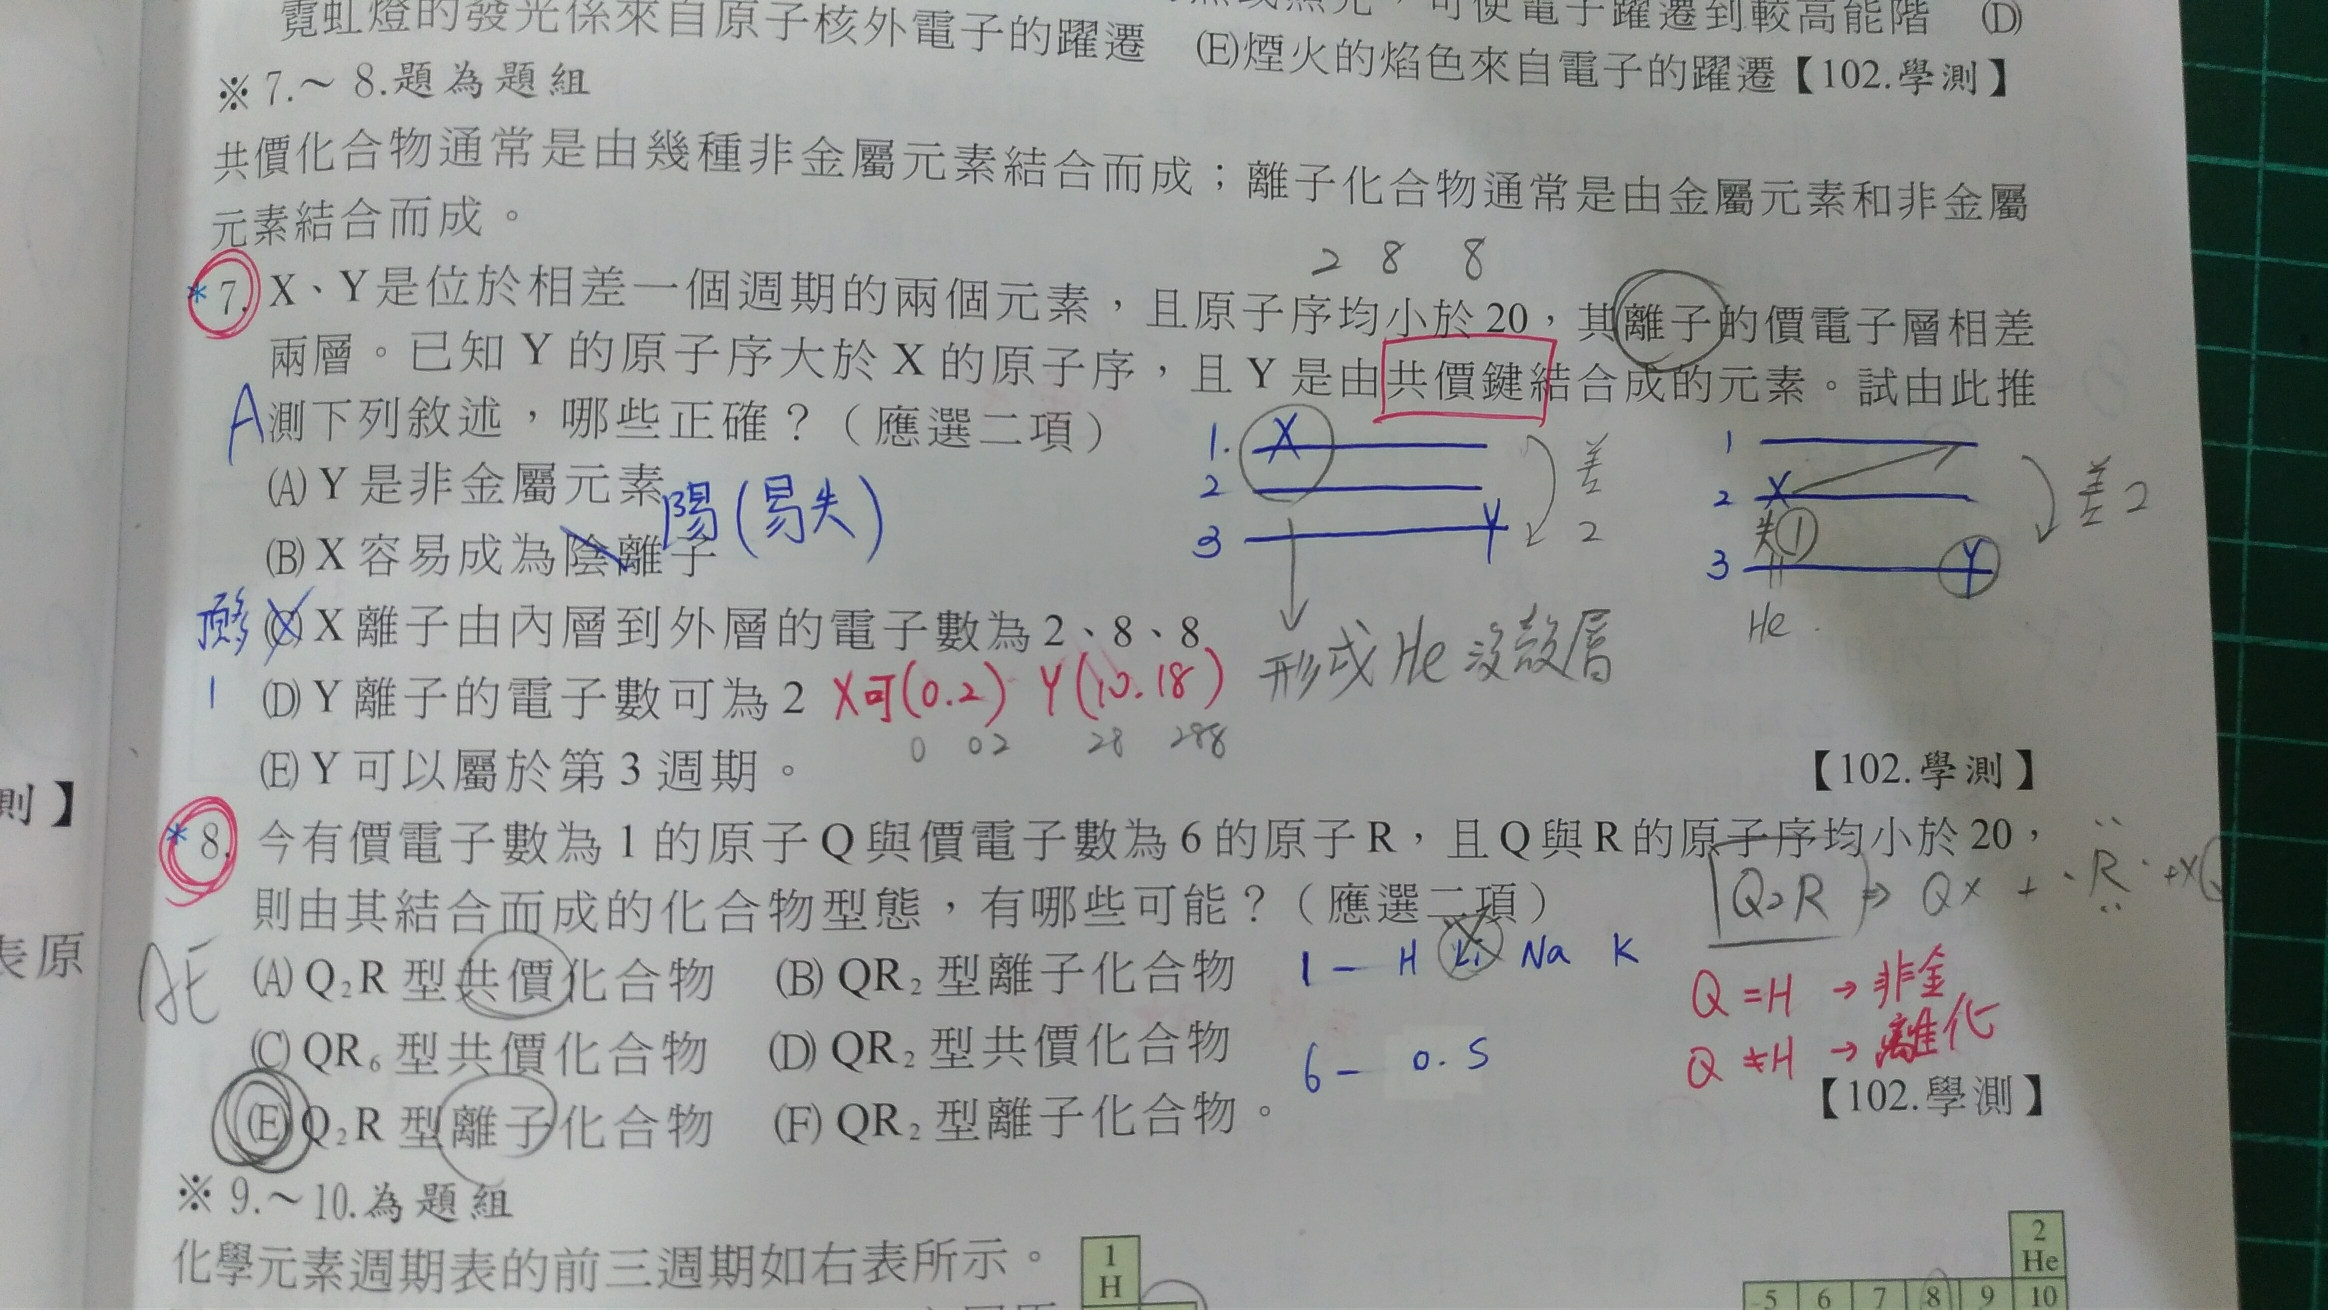 霓虹燈的發光係來自原子核外電子的躍遷
可使電子躍遷到較高能階 (D)
(E)煙火的焰色來自電子的躍遷【102.學測】
※7.～8.題為題組
共價化合物通常是由幾種非金屬元素結合而成；離子化合物通常是由金屬元素和非金屬
元素結合而成。
2 8 8
*7. X、Y是位於相差一個週期的兩個元素，且原子序均小於20，其離子的價電子層相差
兩層。已知Y的原子序大於X的原子序，且Y是由共價鍵結合成的元素。試由此推
A
測下列敘述，哪些正確？（應選二項）
(A) Y是非金屬元素
陽(易失)
(B) X容易成為陰離子
(C) X離子由內層到外層的電子數為2、8、8
1
(D) Y離子的電子數可為2
X可(0.2) Y(10.18)
0 02 28 288
(E) Y可以屬於第3週期。
【102.學測】
1. X
2
3 Y
差
2
形成He沒殼層
1
2 X
失①
3 Y
He
差2
*8. 今有價電子數為1的原子Q與價電子數為6的原子R，且Q與R的原子序均小於20，
則由其結合而成的化合物型態，有哪些可能？（應選二項）
Q2R ⇒ Qx + R + xQ
AE
(A) Q₂R型共價化合物 (B) QR₂型離子化合物
(C) QR₆型共價化合物 (D) QR₂型共價化合物
(E) Q₂R型離子化合物 (F) QR₂型離子化合物。
1 — H Li Na K
6 — O. S
Q = H → 非金
Q ≠ H → 離化
【102.學測】
※9.～10.為題組
化學元素週期表的前三週期如右表所示。
1
H
2
He
5 6 7 8 9 10
則】
表原